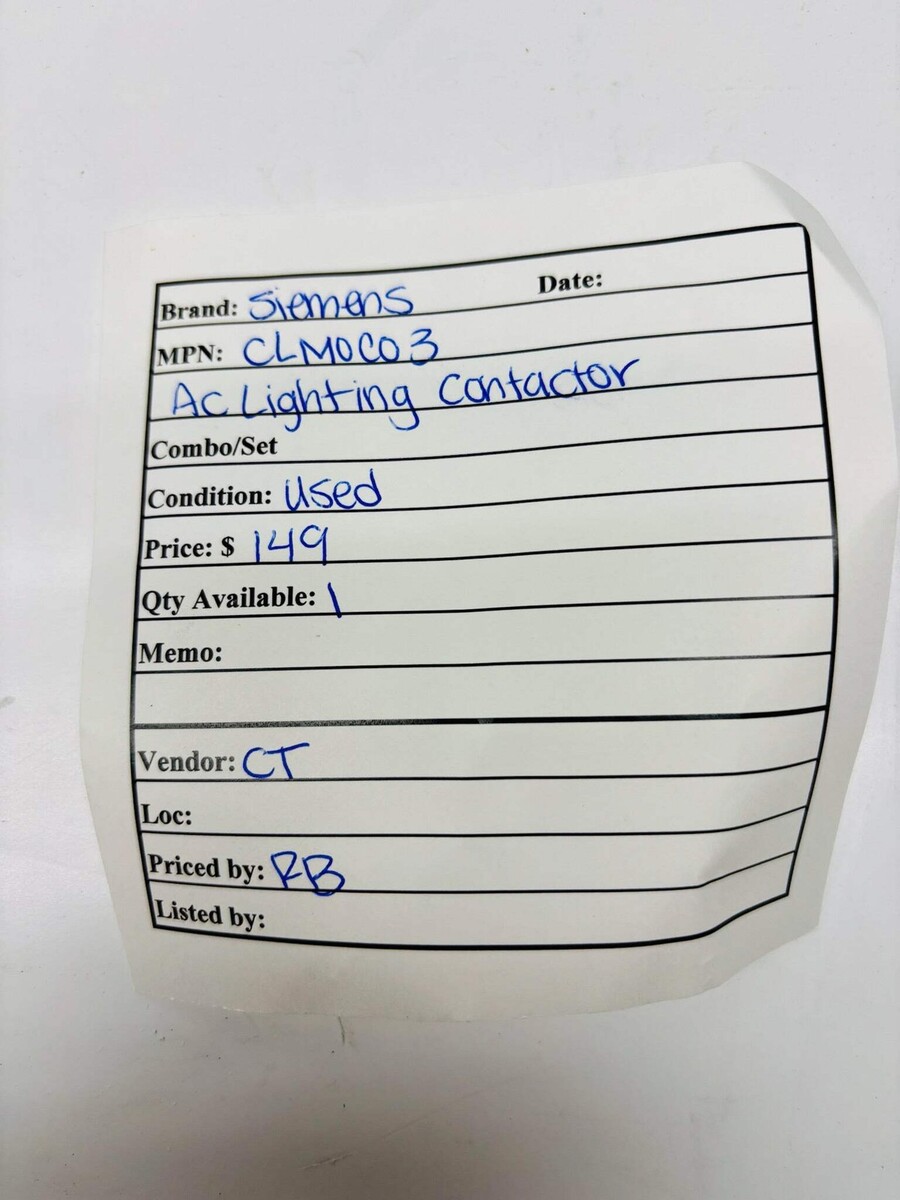 Brand: Siemens Date:
MPN: CLM0C03
Ac Lighting Contactor
Combo/Set
Condition: Used
Price: $ 149
Qty Available: 1
Memo:
Vendor: CT
Loc:
Priced by: RB
Listed by: